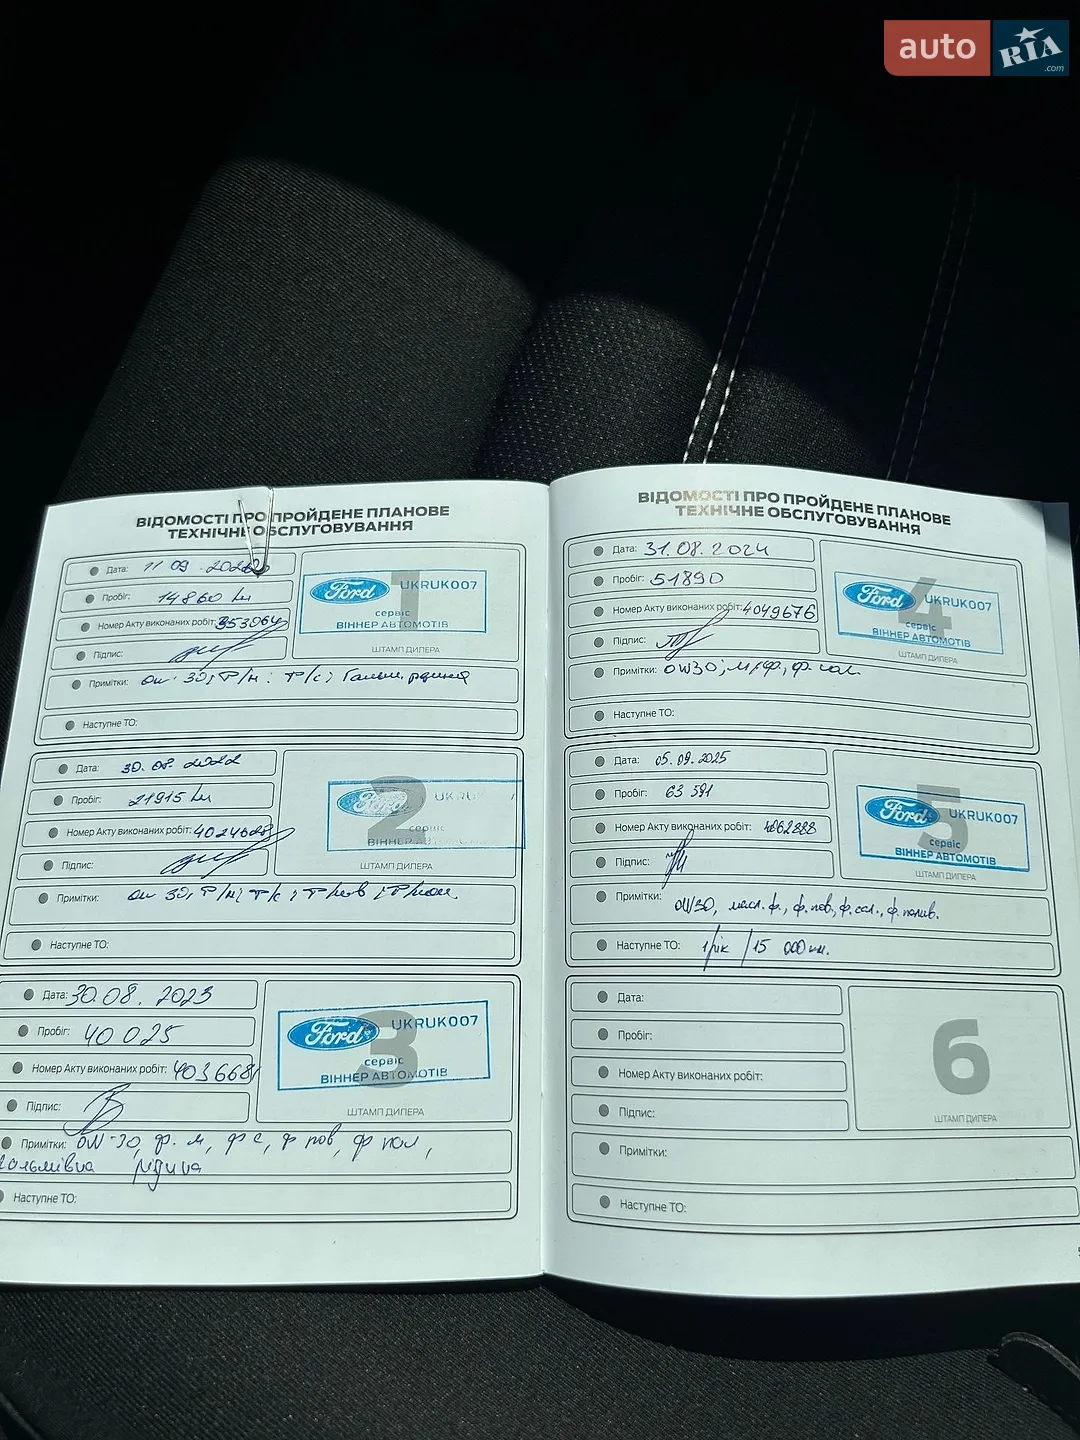 auto RIA.com
ВІДОМОСТІ ПРО ПРОЙДЕНЕ ПЛАНОВЕ
ТЕХНІЧНЕ ОБСЛУГОВУВАННЯ
Дата: 11 09
Пробіг: 14860 км
Номер Акту виконаних робіт:
Підпис:
1
Ford UKRUK007
сервіс
ВІННЕР АВТОМОТІВ
ШТАМП ДИЛЕРА
Примітки: 30,
Наступне ТО:
Дата: 30.08.2022
Пробіг: 21915 км
Номер Акту виконаних робіт:
Підпис:
2
Ford UKRU
сервіс
ВІННЕР АВТОМОТІВ
ШТАМП ДИЛЕРА
Примітки: 30,
Наступне ТО:
Дата: 30.08.2023
Пробіг: 40025
Номер Акту виконаних робіт: 4036681
Підпис:
3
Ford UKRUK007
сервіс
ВІННЕР АВТОМОТІВ
ШТАМП ДИЛЕРА
Примітки: 0W-30, ф. м, ф с, ф пов, ф пол,
гальмівна рідина
Наступне ТО:
ВІДОМОСТІ ПРО ПРОЙДЕНЕ ПЛАНОВЕ
ТЕХНІЧНЕ ОБСЛУГОВУВАННЯ
Дата: 31.08.2024
Пробіг: 51890
Номер Акту виконаних робіт: 4049676
Підпис:
4
Ford UKRUK007
сервіс
ВІННЕР АВТОМОТІВ
ШТАМП ДИЛЕРА
Примітки: 0W30; м/ф, ф.
Наступне ТО:
Дата: 05.09.2025
Пробіг: 63 591
Номер Акту виконаних робіт:
Підпис:
5
Ford UKRUK007
сервіс
ВІННЕР АВТОМОТІВ
ШТАМП ДИЛЕРА
Примітки: 0W30, масл. ф., ф. пов, ф. сал., ф. полив.
Наступне ТО: 1/рік / 15 000 км.
Дата:
Пробіг:
Номер Акту виконаних робіт:
Підпис:
6
ШТАМП ДИЛЕРА
Примітки:
Наступне ТО: